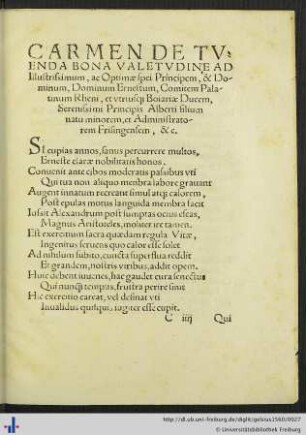 CARMEN DE TV-
ENDA BONA VALETVDINE AD
Illustrissimum, ac Optimæ spei Principem, & Do-
minum, Dominum Ernestum, Comitem Pala-
tinum Rheni, et vtriusq; Boiariæ Ducem,
Serenissimi Principis Alberti filium
natu minorem, et Administrato-
rem Frisingensem, & c.
SI cupias annos, sanus percurrere multos,
Erneste claræ nobilitatis honos.
Conuenit ante cibos moderatis passibus vti
Qui tua non aliquo menbra labore grauant
Augent innatum recreant simulatq; calorem,
Post epulas motus languida membra facit
Iussit Alexandrum post sumptas ocius escas,
Magnus Aristoteles, mois ter ire tamen.
Est exercitium sacra quædam regula Vitæ,
Ingenitus seruens quo calor esse solet
Ad nihilum subito, cuncta superflua reddit
Et grandem, nostris viribus, addit opem.
Huic debent iuuenes, hac gaudet cura senectus
Qui nunq; tempus, frustra perire sinit
Hac exercitio careat, vel desinat vti
Inualidus quisquis, iugiter esse cupit.
C iiij Qui
http://dl.ub.uni-freiburg.de/diglit/gelous1560/0027
© Universitätsbibliothek Freiburg